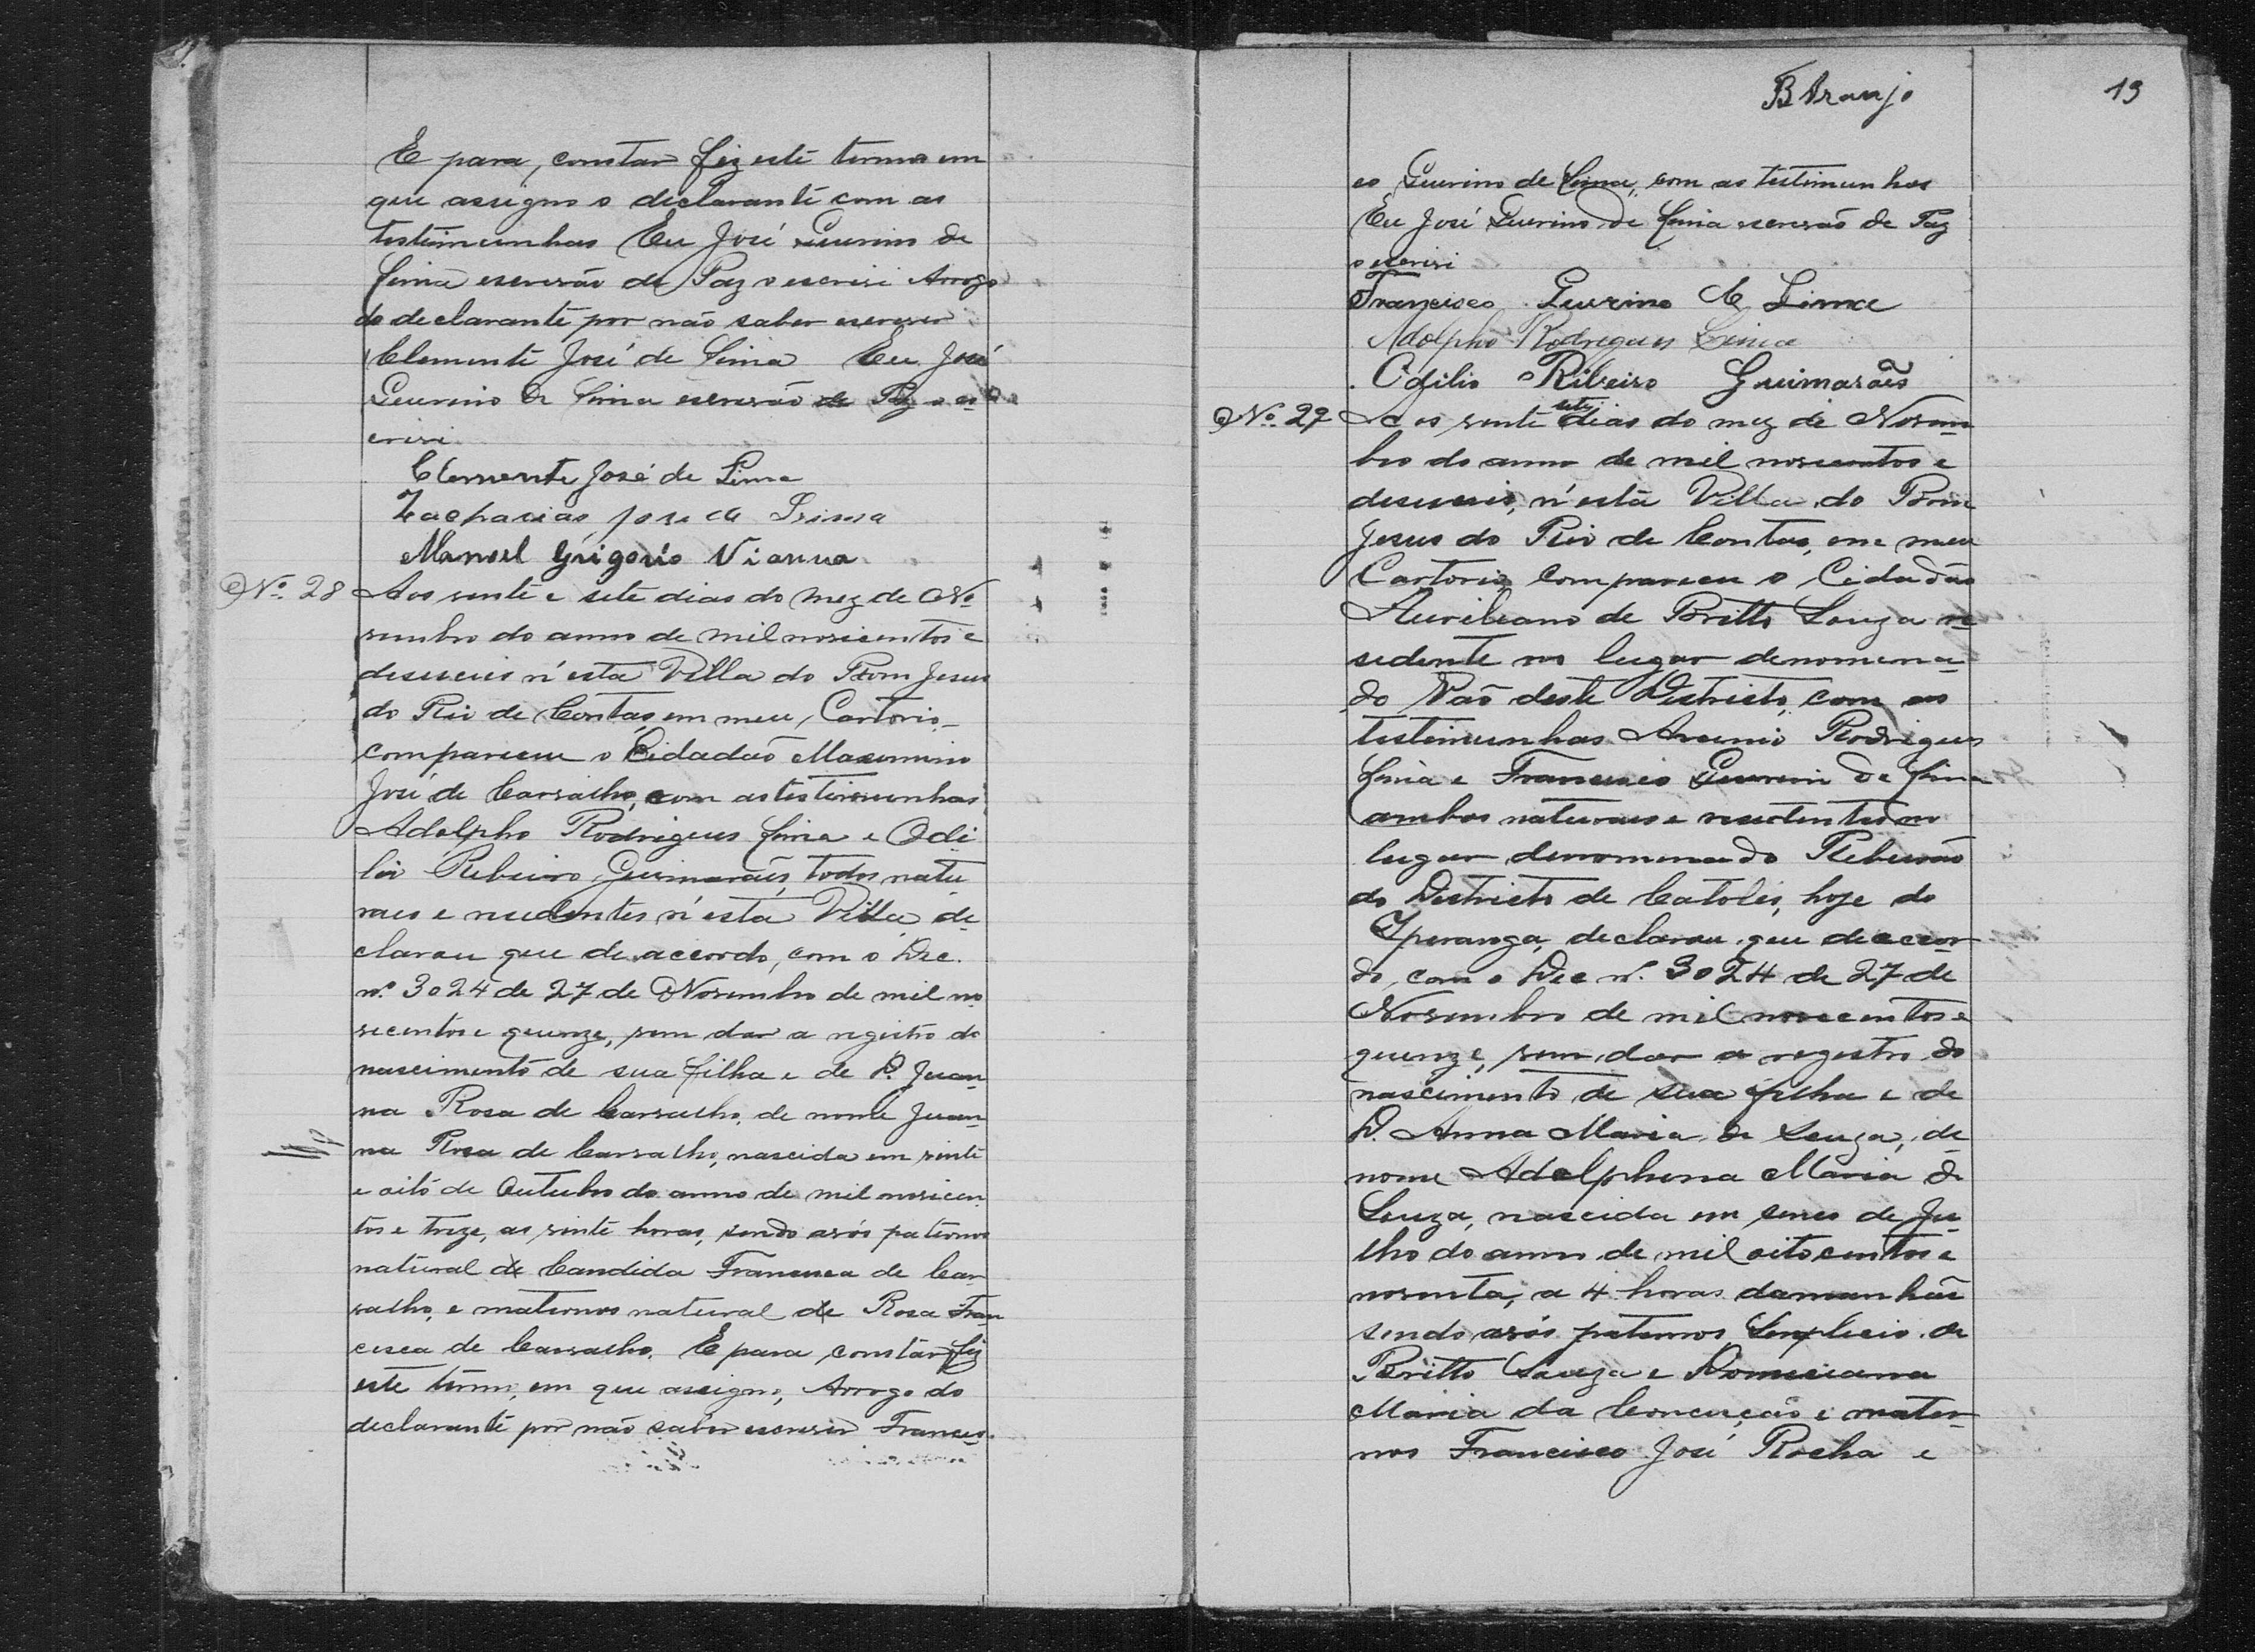 E para, constar fiz este termo em
que assigno o declarante com as
testimunhas Eu José Guirino de
Lima escrivão de Paz o escrivi Arrogo
do declarante por não saber escrever
Clemente José de Lima Eu José
Guirino de Lima escrivão de Paz o es-
crivi.
Clemente José de Lima
Zacharias José de Lima
Manoel Grigorio Vianna
Nº. 28 Aos vinte e sete dias do mez de No-
vembro do anno de mil novicentos e
deseseis n'esta Villa do Bom Jesus
do Rio de Contas, em meu, Cartorio,
compareceu o Cidadão Maximino
José de Carvalho, com as testimunhas
Adolpho Rodrigues Lima e Odi-
lio Ribeiro Guimarães, todos natu
raes e residentes n'esta Villa, de-
clarou que de accordo, com o Dec.
nº 3024 de 27 de Novembro de mil no
vecentos e quinze, vem dar a registro do
nascimento de sua filha e de D. Juan-
na Rosa de Carvalho, de nome Juan-
na Rosa de Carvalho, nascida em vinte
e oito de Outubro do anno de mil novicen
tos e treze, as vinte horas, sendo avós paternos
natural de Candida Francisca de Car-
valho, e maternos natural de Rosa Fran-
cisca de Carvalho. E para, constar fiz
este termo, em que assigno, Arrogo do
declarante por não saber escrever Francis-
B Araujo
19
co Guirino de Lima, com as testimunhas
Eu José Guirino de Lima escrivão de Paz
o escrivi
Francisco Guirino de Lima
Adolpho Rodrigues Lima
Odilio Ribeiro Guimarães
Nº. 29 Aos vinte sete dias do mez de Novem
bro do anno de mil novicentos e
deseseis, n'esta Villa do Bom
Jesus do Rio de Contas, em meu
Cartorio compareceu o Cidadão
Aureliano de Britto Souza re-
sedente no lugar denomina-
do Vaõ deste Districto, com as
testimunhas Arcenio Rodrigues
Lima e Francisco Guirino de Lima
ambos naturaes e residentes no
lugar denominado Ribeirão
do Districto de Catolés, hoje do
Yperanga, declarou que de accor-
do, com o Dec nº. 3024 de 27 de
Novembro de mil novecentos e
quinze, vem dar a registro do
nascimento de sua filha e de
D. Anna Maria de Souza, de
nome Adelphina Maria de
Souza, nascida em sinco de Ju-
lho do anno de mil oitocentos e
noventa, a 4 horas da manhãa
sendo avós paternos Simplicio de
Britto Souza e Domiciana
Maria da Conceição e mater-
nos Francisco José Rocha e